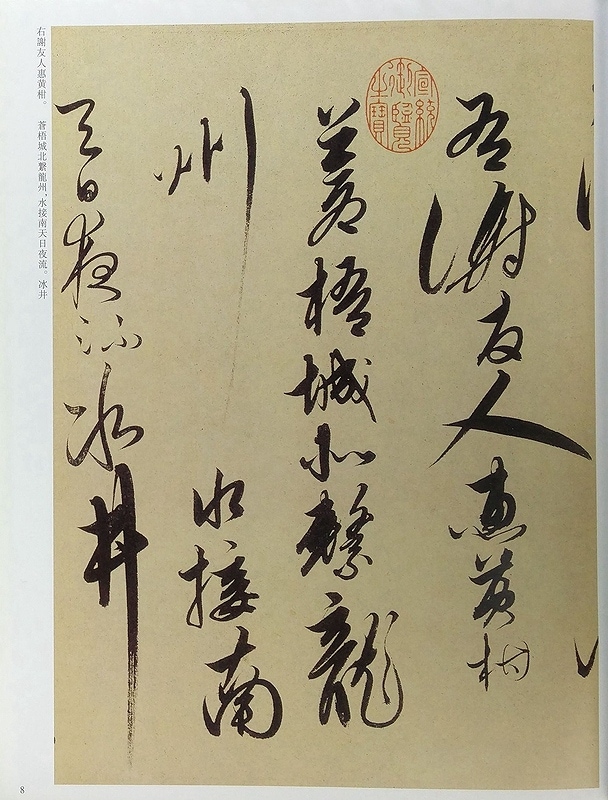 右謝友人惠黄柑
蒼梧城北繫龍
州水接南
天日夜流冰井
宣統御覽之寶
右謝友人惠黄柑。 蒼梧城北繫龍州，水接南天日夜流。冰井
8